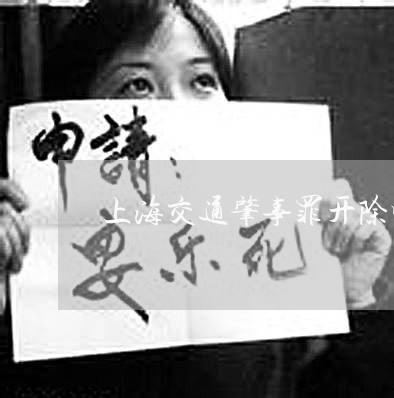 申請：
上海交通肇事罪开除
安乐死